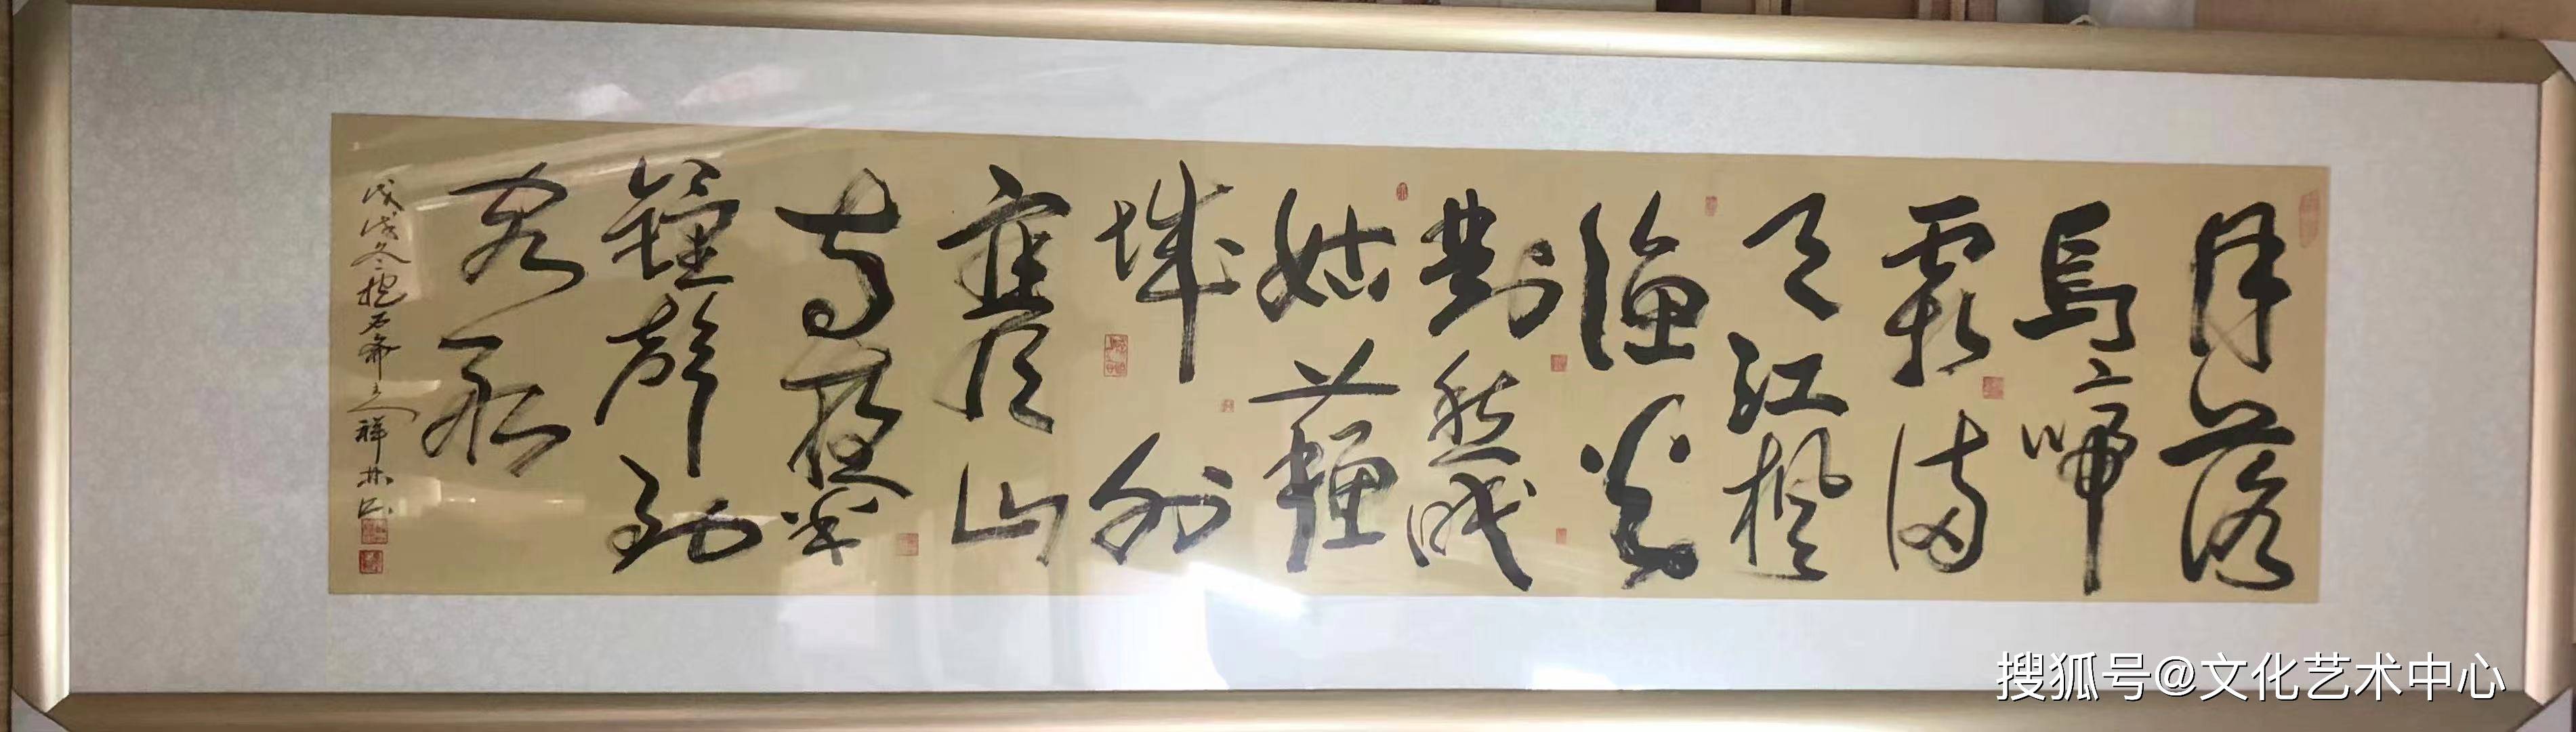 月落
烏啼
霜满
天江楓
漁火
對愁眠
姑蘇
城外
寒山
寺夜半
鐘聲到
客船
戊戌冬抱石斋祥林书
搜狐号@文化艺术中心